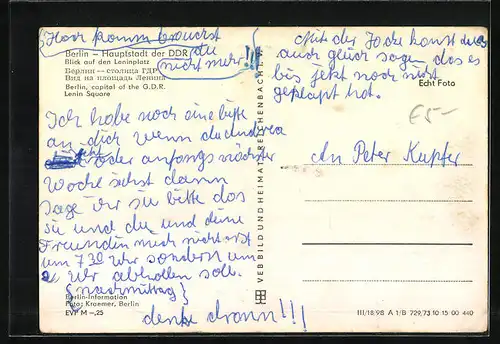 Hach komm brauchst
du
nicht mehr!!
Berlin – Hauptstadt der DDR
Blick auf den Leninplatz
Берлин — столица ГДР
Вид на площадь Ленина
Berlin, capital of the G.D.R.
Lenin Square
Ich habe noch eine bitte
an dich wenn du Andrea
oder anfangs nächster
Woche siehst dann
sage ihr sie bitte das
sie und du und deine
Freundin mich nicht erst
um 7 30 Uhr sonderst um
2 Uhr abhollen soll.
{nachmittag}
denke drann!!!
Berlin-Information
Foto: Kraemer, Berlin
EVP M –,25
VEB BILD UND HEIMAT REICHENBACH
Mit der Jacke kannst du
auch glück sagen das es
bis jetzt noch nicht
geklapt hat.
Echt Foto
£5–
An Peter Kupfer
III/18/98 A 1/B 729/73 10 15 00 440